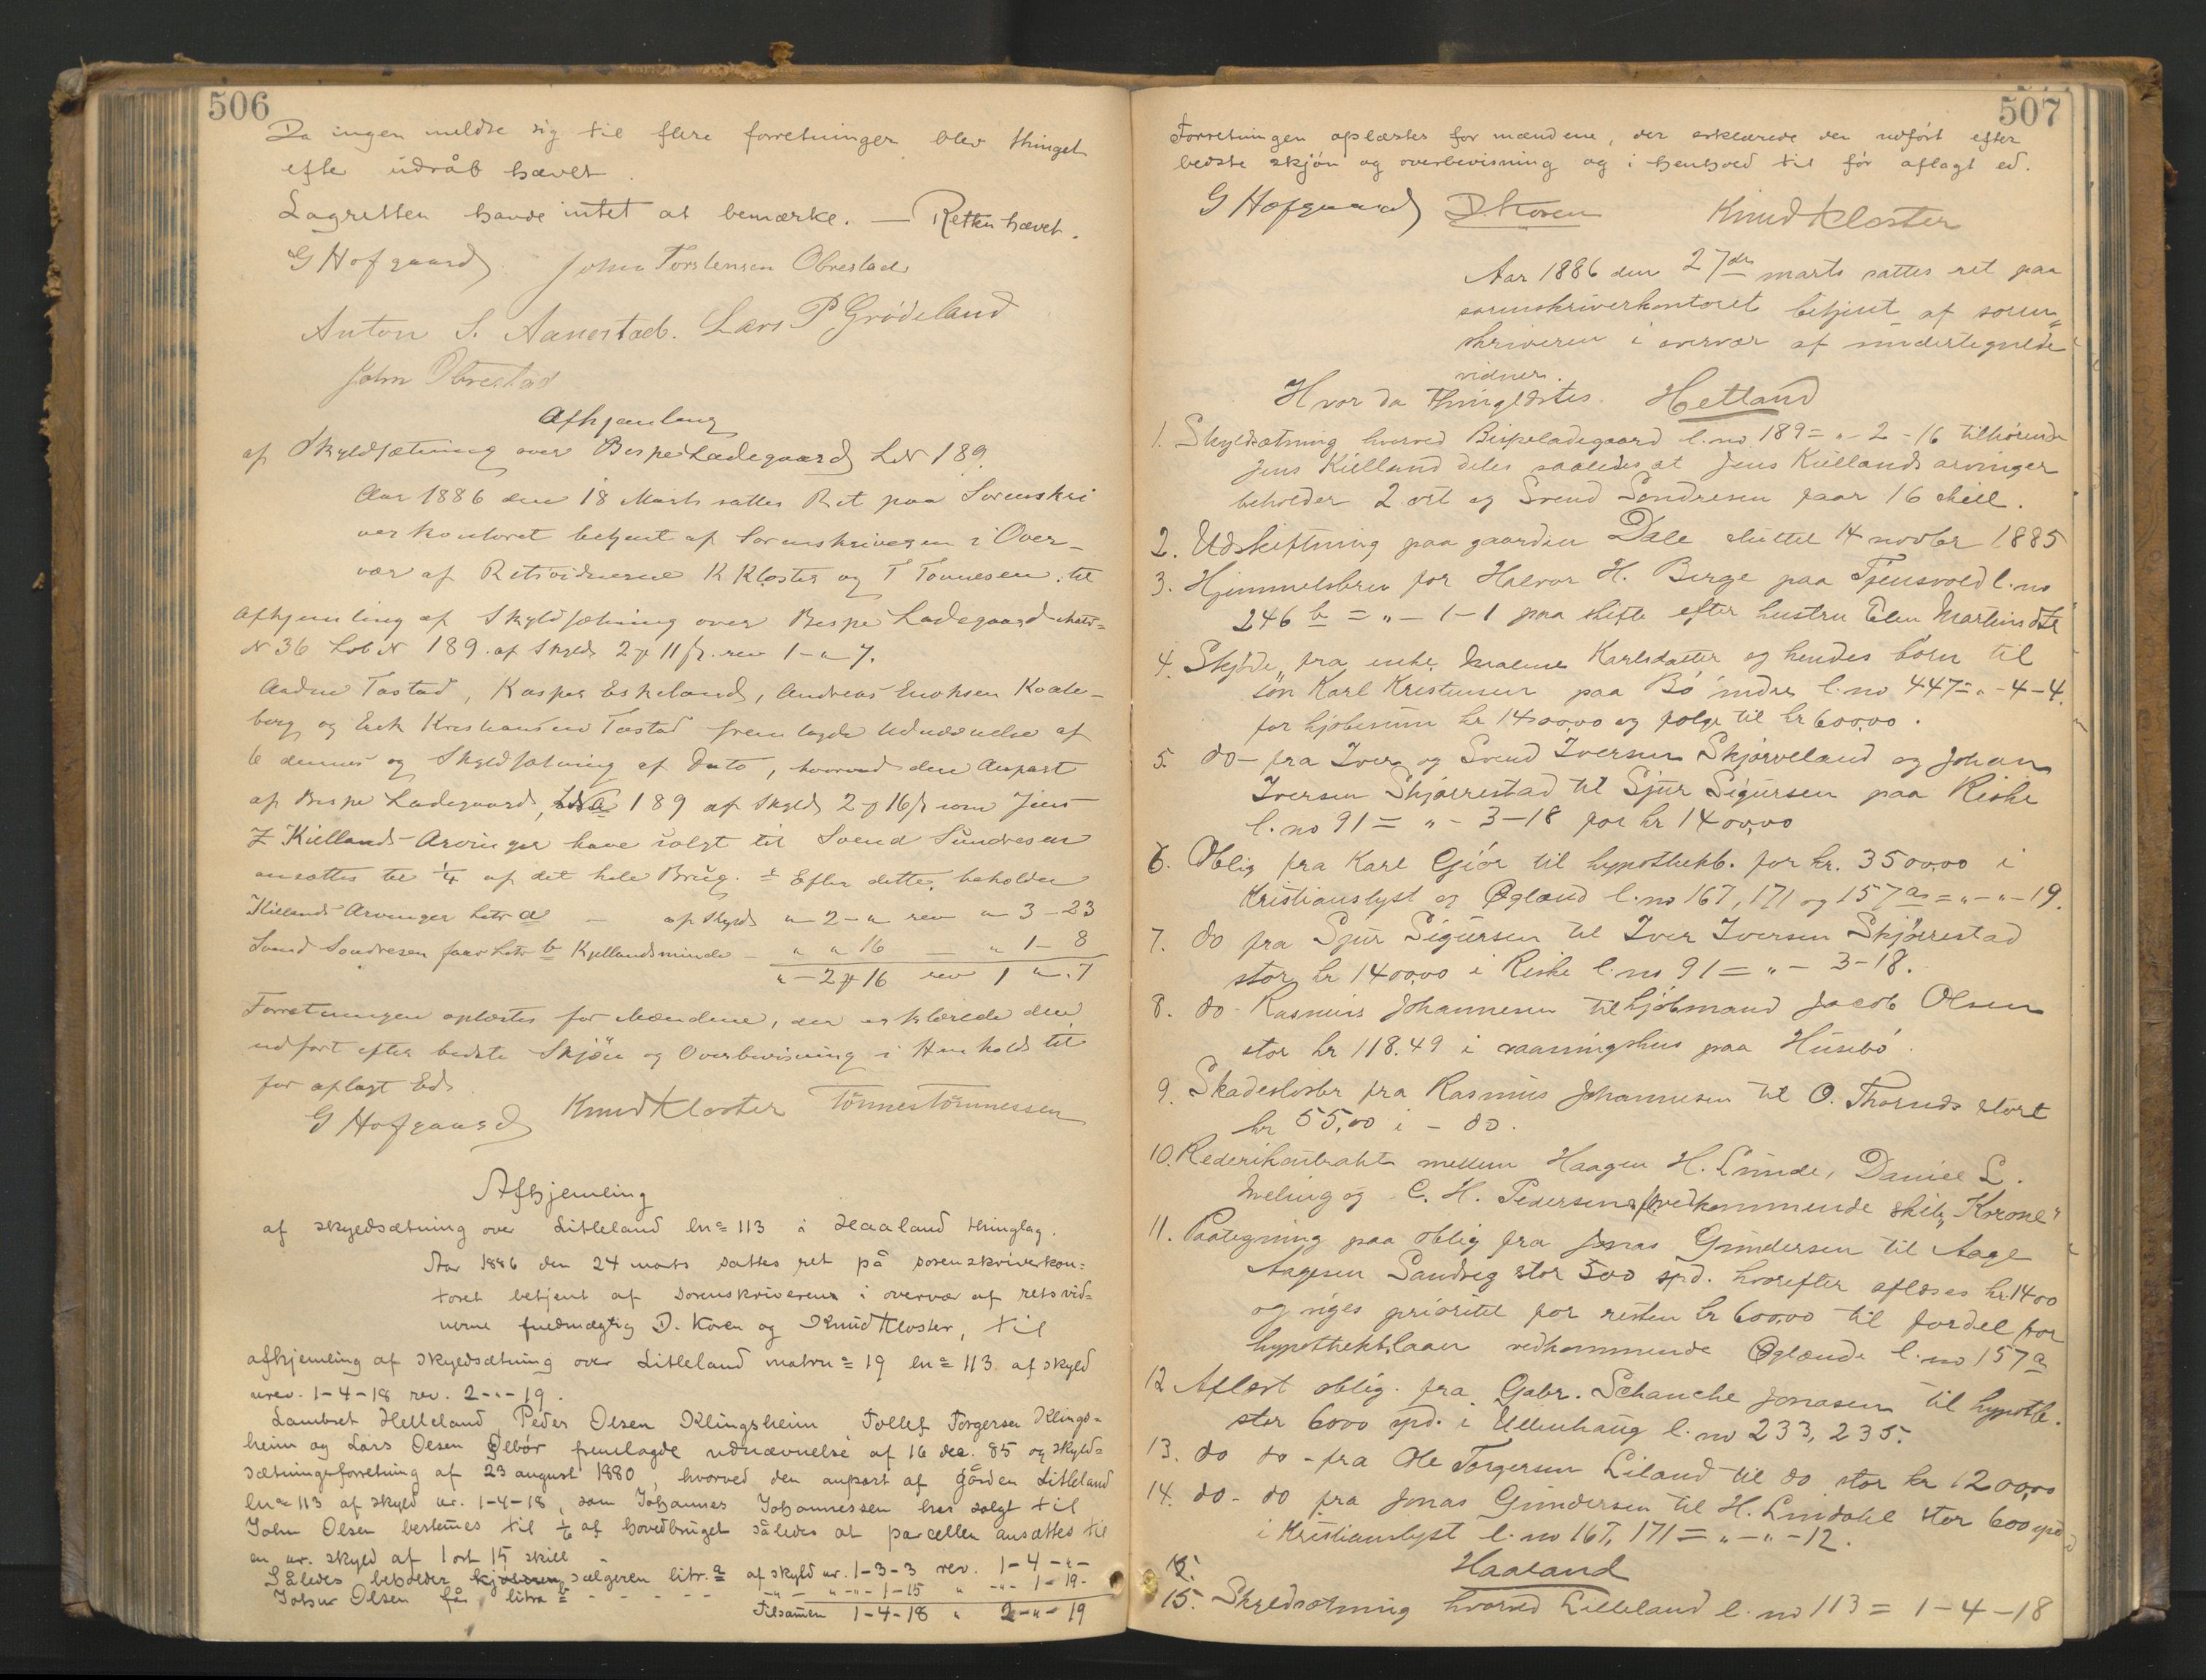 506
Da ingen meldte sig til flere forretninger blev thinget
efter udråb hævet.
Lagretten havde intet at bemærke. — Retten hævet.
G Hofgaard John Torstensen Obrestad
Anton S. Aanestad. Lars P Grödeland
John Obrestad
Afhjemling
af Skyldsætning over Bispe Ladegaard LN 189.
Aar 1886 den 18 Marts sattes Ret paa Sorenskri
verkontoret betjent af Sorenskriveren i Over-
vær af Retsvidnerne K Kloster og T Tønnesen til
Afhjemling af Skyldsætning over Bispe Ladegaard Matr=
N 36 Løb N 189 af Skyld 2 11 rev 1 - " 7.
Aadne Tastad, Kasper Eskeland, Andreas Enoksen Koale-
berg og Erik Kristiansen Tastad fremlagde Udnævnelse af
6 dennes og Skyldsætning af Dato, hvorved den Anpart
af Bispe Ladegaard, 189 af Skyld 2 16 som Jens
Z Kiellands Arvinger have solgt til Svend Sundresen
ansattes til 1/4 af det hele Brug. Efter dette beholder
Kiellands Arvinger Litr a — af Skyld " 2 - " rev " 3 - 23
Svend Sondresen faar Litr b Kjellandsminde — " " 16 — " 1 - 8
" - 2 16 rev 1 " . 7
Forretningen oplæstes for Mændene, der erklærede den
udført efter bedste Skjøn og Overbevisning i Henhold til
før aflagt Ed.
G Hofgaard Knud Kloster Tönnes Tönnessen
Afhjemling
af skyldsætning over Litleland ln= 113 i Haaland thinglag.
Aar 1886 den 24 marts sattes ret på sorenskriverkon=
toret betjent af sorenskriveren i overvær af retsvid=
nerne fuldmægtig D. Koren og Knud Kloster, til
afhjemling af skyldsætning over Litleland matrn= 19 ln= 113 af skyld
urev. 1-4-18 rev. 2-"-19.
Lambret Helleland Peder Olsen Klingsheim Tollef Torgersen Klings-
heim og Lars Olsen Ølbör fremlagde udnævnelse af 16 dec. 85 og skyld=
sætningsforretning af 23 august 1880, hvorved den anpart af gården Litleland
ln= 113 af skyld ur. 1-4-18, som Johannes Johannessen har solgt til
John Olsen bestemes til 1/6 af hovedbruget således at parcellen ansættes til
en ur. skyld af 1 ort 15 skill -
Således beholder kjøberen sælgeren litr. a af skyld ur. 1-3-3 rev. 1-4-"-
Johan Olsen får litra b - - - - - -"- " -"- 1-15 " -"- 1-19-
Tilsamen 1-4-18 " 2-"-19
507
Forretningen oplæstes for mændene, der erklærede den udført efter
bedste skjön og overbevisning og i henhold til før aflagt ed.
G Hofgaard D Koren Knud Kloster
Aar 1886 den 27de marts sattes ret paa
sorenskriverkontoret betjent af soren=
skriveren i overvær af undertegnede
vidner.
Hvor da thinglæstes. Hetland
1. Skyldsætning hvorved Bispeladegaard l.no 189 = " - 2 - 16 tilhörende
Jens Kielland deles saaledes at Jens Kiellands arvinger
beholder 2 ort og Svend Sondresen faar 16 skill.
2. Udskiftning paa gaarden Dale sluttet 14 novbr 1885
3. Hjemmelsbrev for Halvor H. Berge paa Tjensvold l.no
246 b = " - 1 - 1 paa skifte efter hustru Elen Martinsdtr
4. Skjöde fra enke Malene Karlsdatter og hendes börn til
sön Karl Kristensen paa Bö indre l.no 447 = " - 4 - 4.
for kjöbesum kr 1400,00 og folge til kr 600,00.
5. do - fra Iver og Svend Iversen Skjörveland og Johan
Iversen Skjörrestad til Sjur Sigursen paa Riske
l.no 91 = " - 3 - 18 for kr 1400,00
6. Oblig fra Karl Gjör til hypothekb. for kr. 3500,00 i
Kristianslyst og Øgland l.no 167, 171 og 157 a = " - " - 19.
7. do fra Sjur Sigursen til Iver Iversen Skjörrestad
stor kr 1400,00 i Riske l.no 91 = " - 3 - 18.
8. do - Rasmus Johannesen til kjöbmand Jacob Olsen
stor kr 118.49 i vaaningshus paa Husebö.
9. Skadeslosbr fra Rasmus Johannesen til O. Thorsds stort
kr 55,00 i - do.
10. Rederikontrakt mellem Haagen H. Lunde, Daniel L.
Meling og C. H. Pedersen vedkommende skib "Krone"
11. Paategning paa oblig fra Jonas Gundersen til Aage
Aagesen Sandvig stor 500 spd. hvorefter aflæses kr. 1400
og viges prioritet for resten kr 600,00 til fordel for
hypothekb.laan vedkommende Øglænde l.no 157 a
12 Aflæst oblig. fra Gabr. Schanche Jonasen til hypothb.
stor 6000 spd. i Ullenhaug l.no 233, 235.
13. do do - fra Ole Torgersen Liland til do stor kr 1200,00
14. do - do fra Jonas Gundersen til H. Lindahl stor 600 spd
i Kristianslyst l.no 167, 171 = " - " - 12.
Haaland
15. Skyldsætning hvorved Lilleland l.no 113 = 1 - 4 - 18